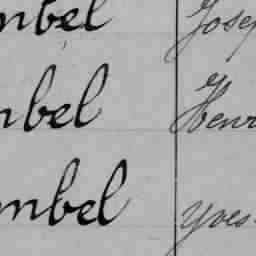 mbel Josep
mbel Henr
mbel Yves